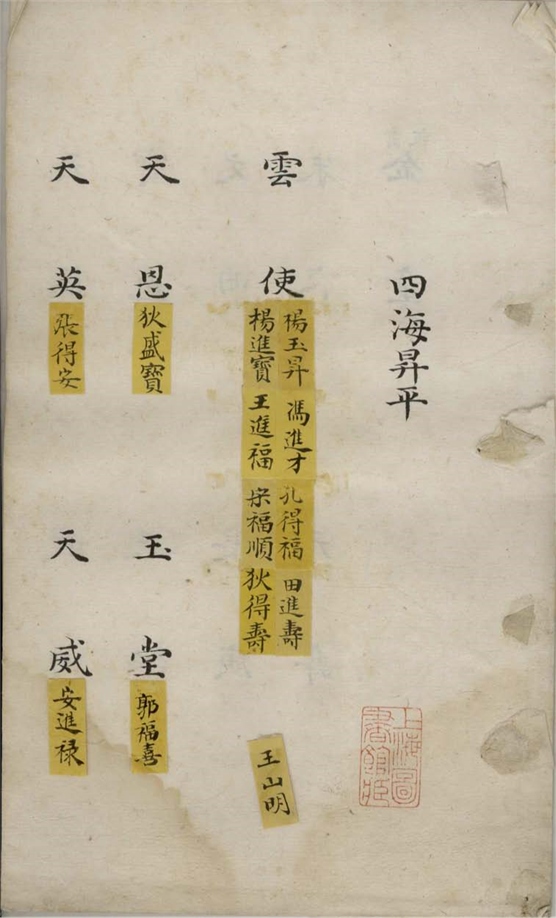 四海昇平
雲使
楊玉昇 馮進才 孔得福 田進壽
楊進寶 王進福 宋福順 狄得壽
王山明
天恩 狄盛寶
玉堂 郭福喜
天英 張得安
天威 安進祿
上海圖
書館藏